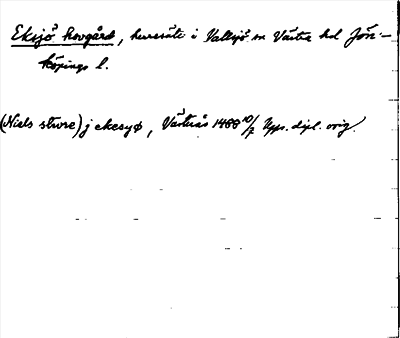 Eksjö hovgård, huvudsäte i Vallsjö sn Västra hd Jön-
köpings l.
(Niels sture) j ekesyø, Västerås 1488 10/7 Upps. dipl. orig.